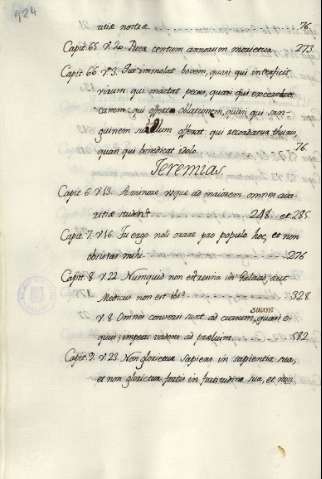 924
utiæ nostræ 76.
Capit. 65 v. 20. Puer centum annorum morietur. 273
Capit. 66 v. 3. Qui immolat bovem, quasi qui interficit
virum qui mactat pecus, quasi qui excerebret
canem; qui offert oblationem, quasi qui san-
guinem suillum offerat qui recordatur thuris,
quasi qui benedicat idolo. 76.
Jeremias.
Capit. 6 v. 13. A minore usque ad maiorem omnes ava-
ritiæ student 248. et 285
Capit. 7. v. 16. Tu ergo noli orare pro populo hoc, et non
obsistas mihi 276
Capit. 8. v. 22. Numquid non est resina in Galaad, aut
Medicus non est ibi? 328
suum
v. 8. Omnes conversi sunt ad cursum, quasi e-
quus impetu vadens ad prælium. 582
Capit. 9. v. 23. Non glorietur sapiens in sapientia sua,
et non glorietur fortis in fortitudine sua, et non